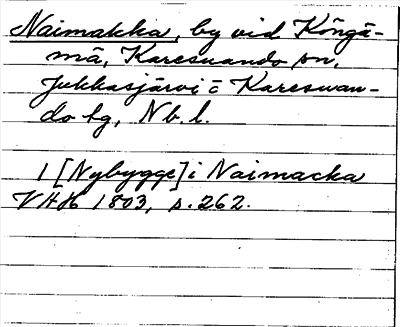 Naimakka, by vid Köngä-
mä, Karesuando sn,
Jukkasjärvi o Karesuan-
do tg, Nb. l.
1 [Nybygge] i Naimacka
VAH 1803, s. 262.